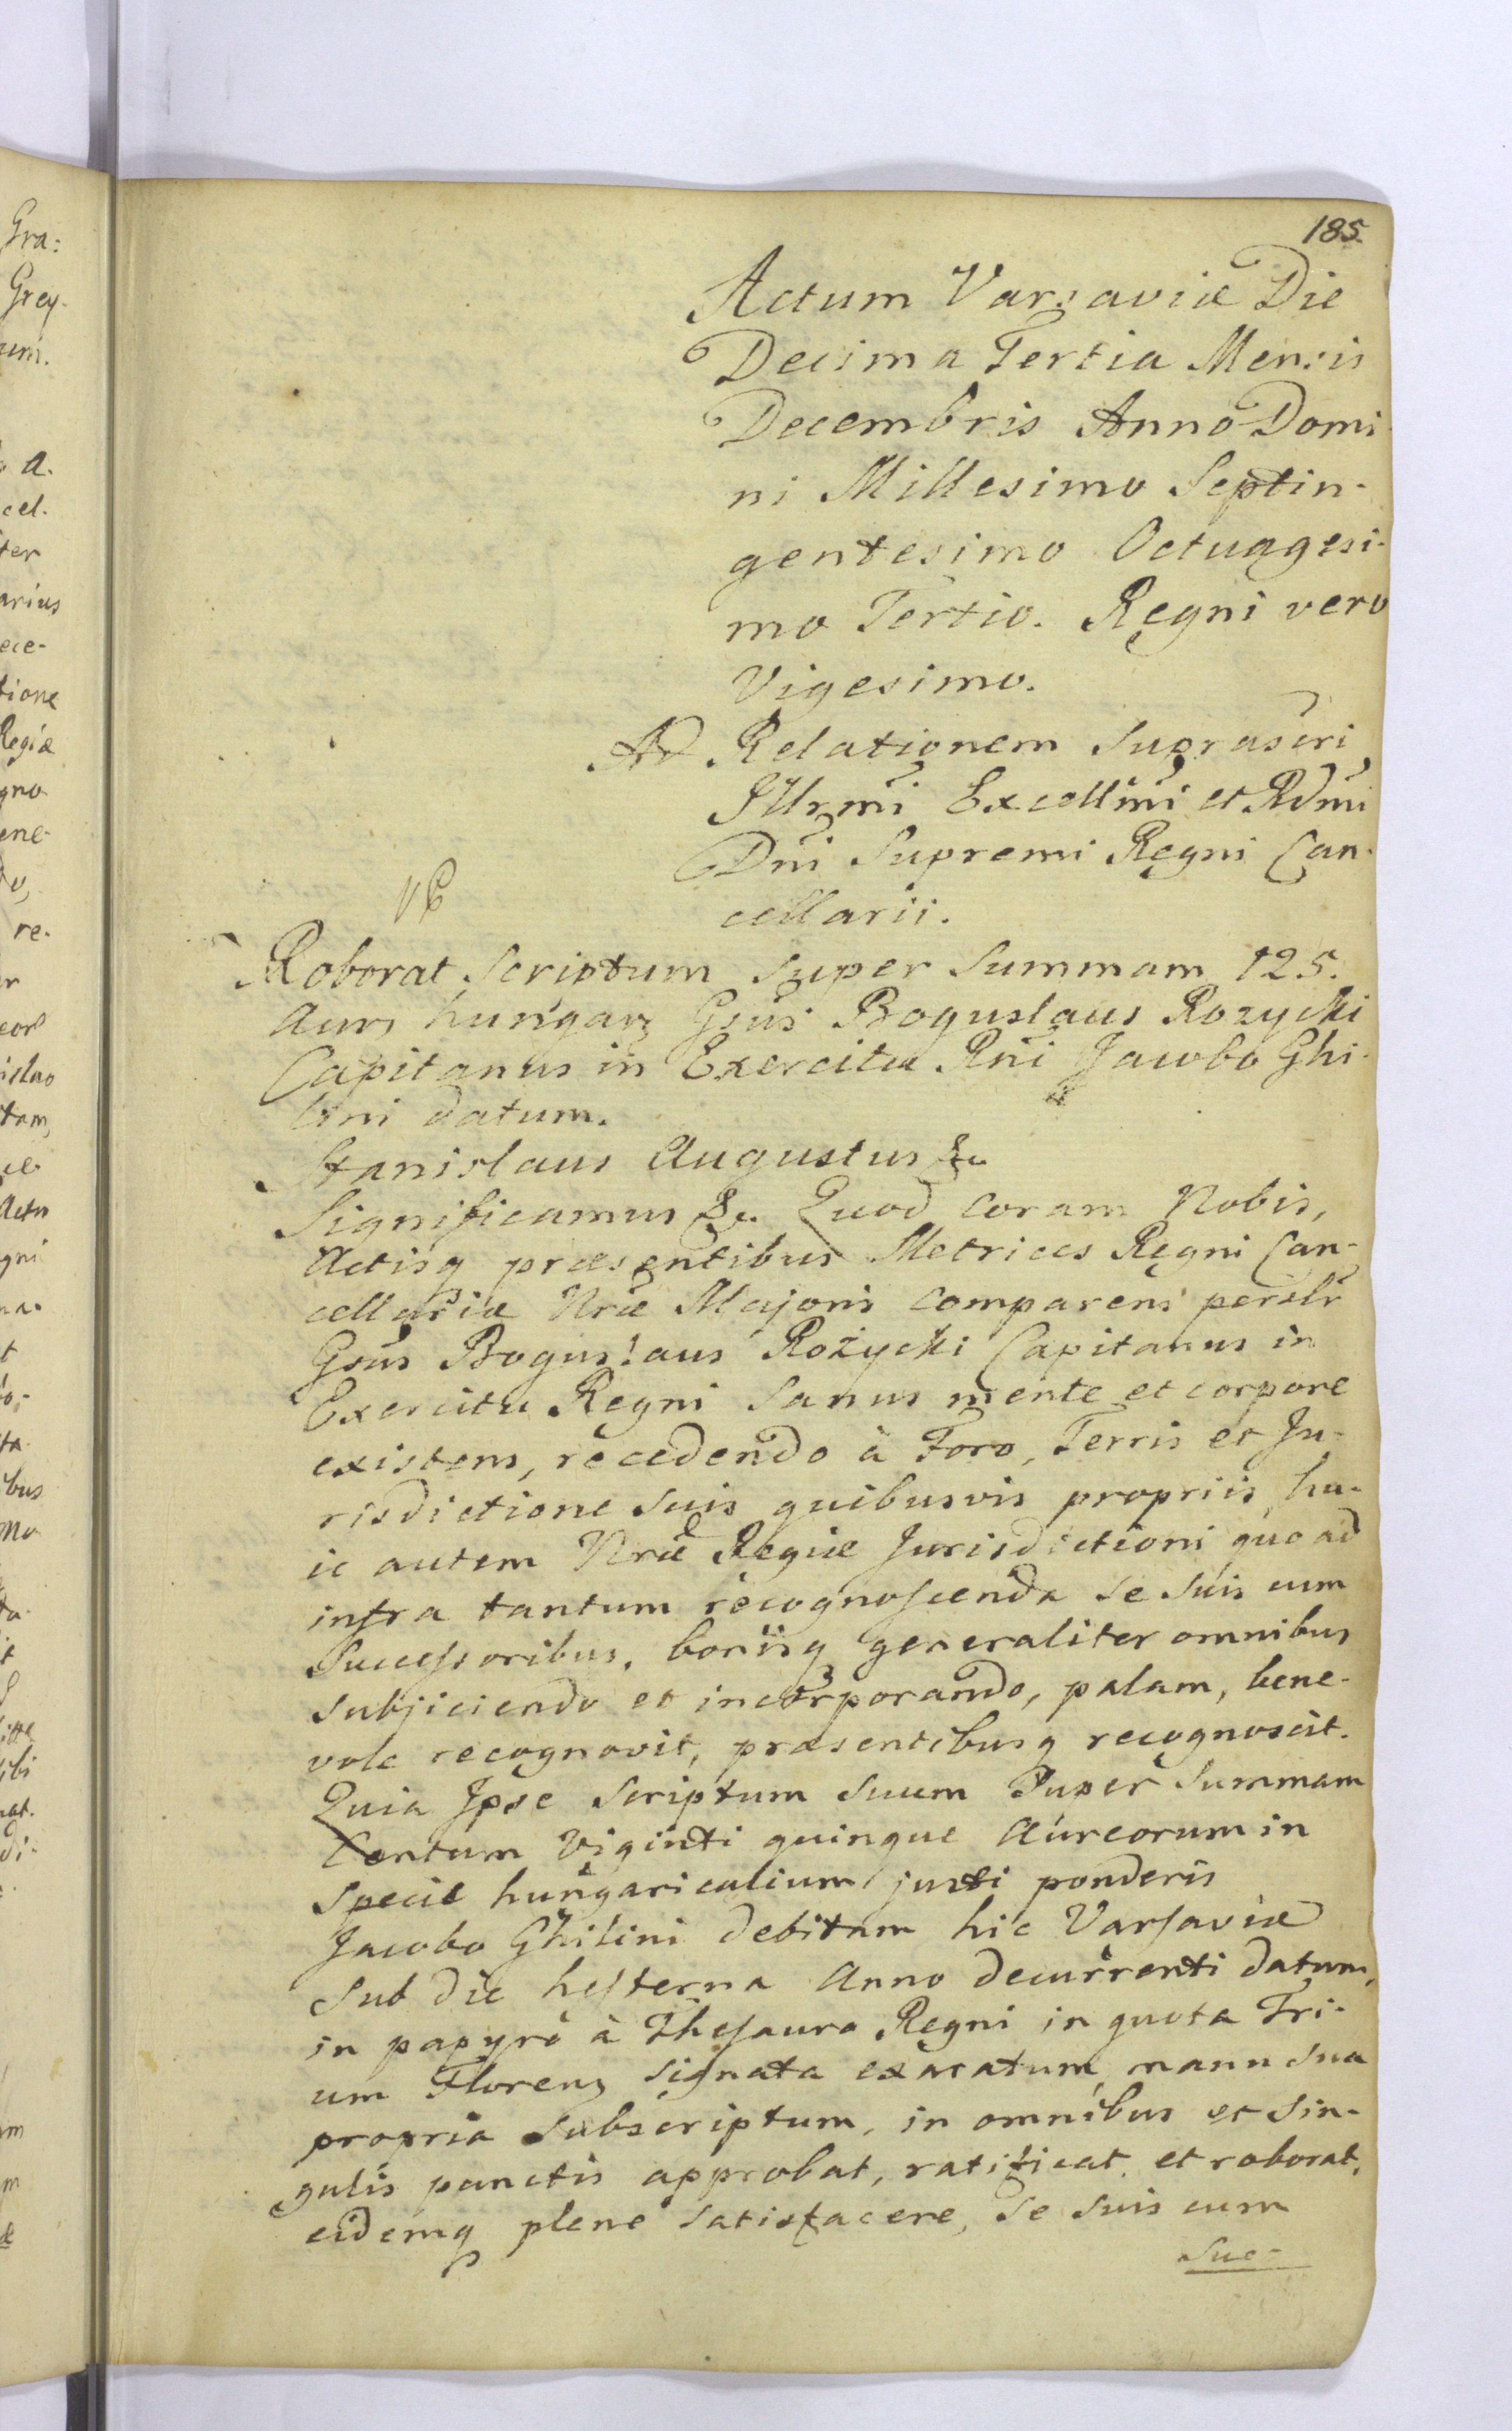 185.
Actum Varsaviæ Die
Decima Tertia Mensis
Decembris Anno Domi
ni Millesimo Septin-
gentesimo Octuagesi-
mo Tertio. Regni vero
Vigesimo.
Ad Relationem suprascri
Illrmi Excellmi et Rdmi
Dni Supremi Regni Can-
cellarii.
Roborat Scriptum super Summam 125.
Aur. hungar. Gsus Boguslaus Rozycki
Capitanus in Exercitu Rni Jacobo Ghi-
lini datum.
Stanislaus Augustus &c.
Significamus &c. Quod coram Nobis,
Actisq præsentibus Metrices Regni Can-
cellariæ Nræ Majoris comparens persolr
Gsus Boguslaus Rożycki Capitanus in
Exercitu Regni sanus mente et corpore
existens, recedendo à Foro, Terris et Ju-
risdictione suis quibusvis propriis, hu-
ic autem Nræ Regiæ Jurisdictioni quo ad
infra tantum recognoscenda se suis cum
Successoribus, bonisq generaliter omnibus
subjiciendo et incorporando, palam, bene-
vole recognovit, præsentibusq recognoscit.
Quia Ipse Scriptum suum Super Summam
Centum Viginti quinque Aureorum in
specie hungaricalium justi ponderis
Jacobo Ghilini debitam hic Varsaviæ
sub die hesterna Anno decurrenti datum,
in papyro à Thesauro Regni in quota Tri-
um Floren. signata exaratum, manu sua
propria subscriptum, in omnibus et sin-
gulis punctis approbat, ratificat, et roborat,
eidemq plene satisfacere, se suis cum
Suc-
Gra:
Grey-
a.
cel.
ter
arius
ece-
tione
Regiæ
gno
ene-
re.
islao
tam,
Actu
gni
ibus